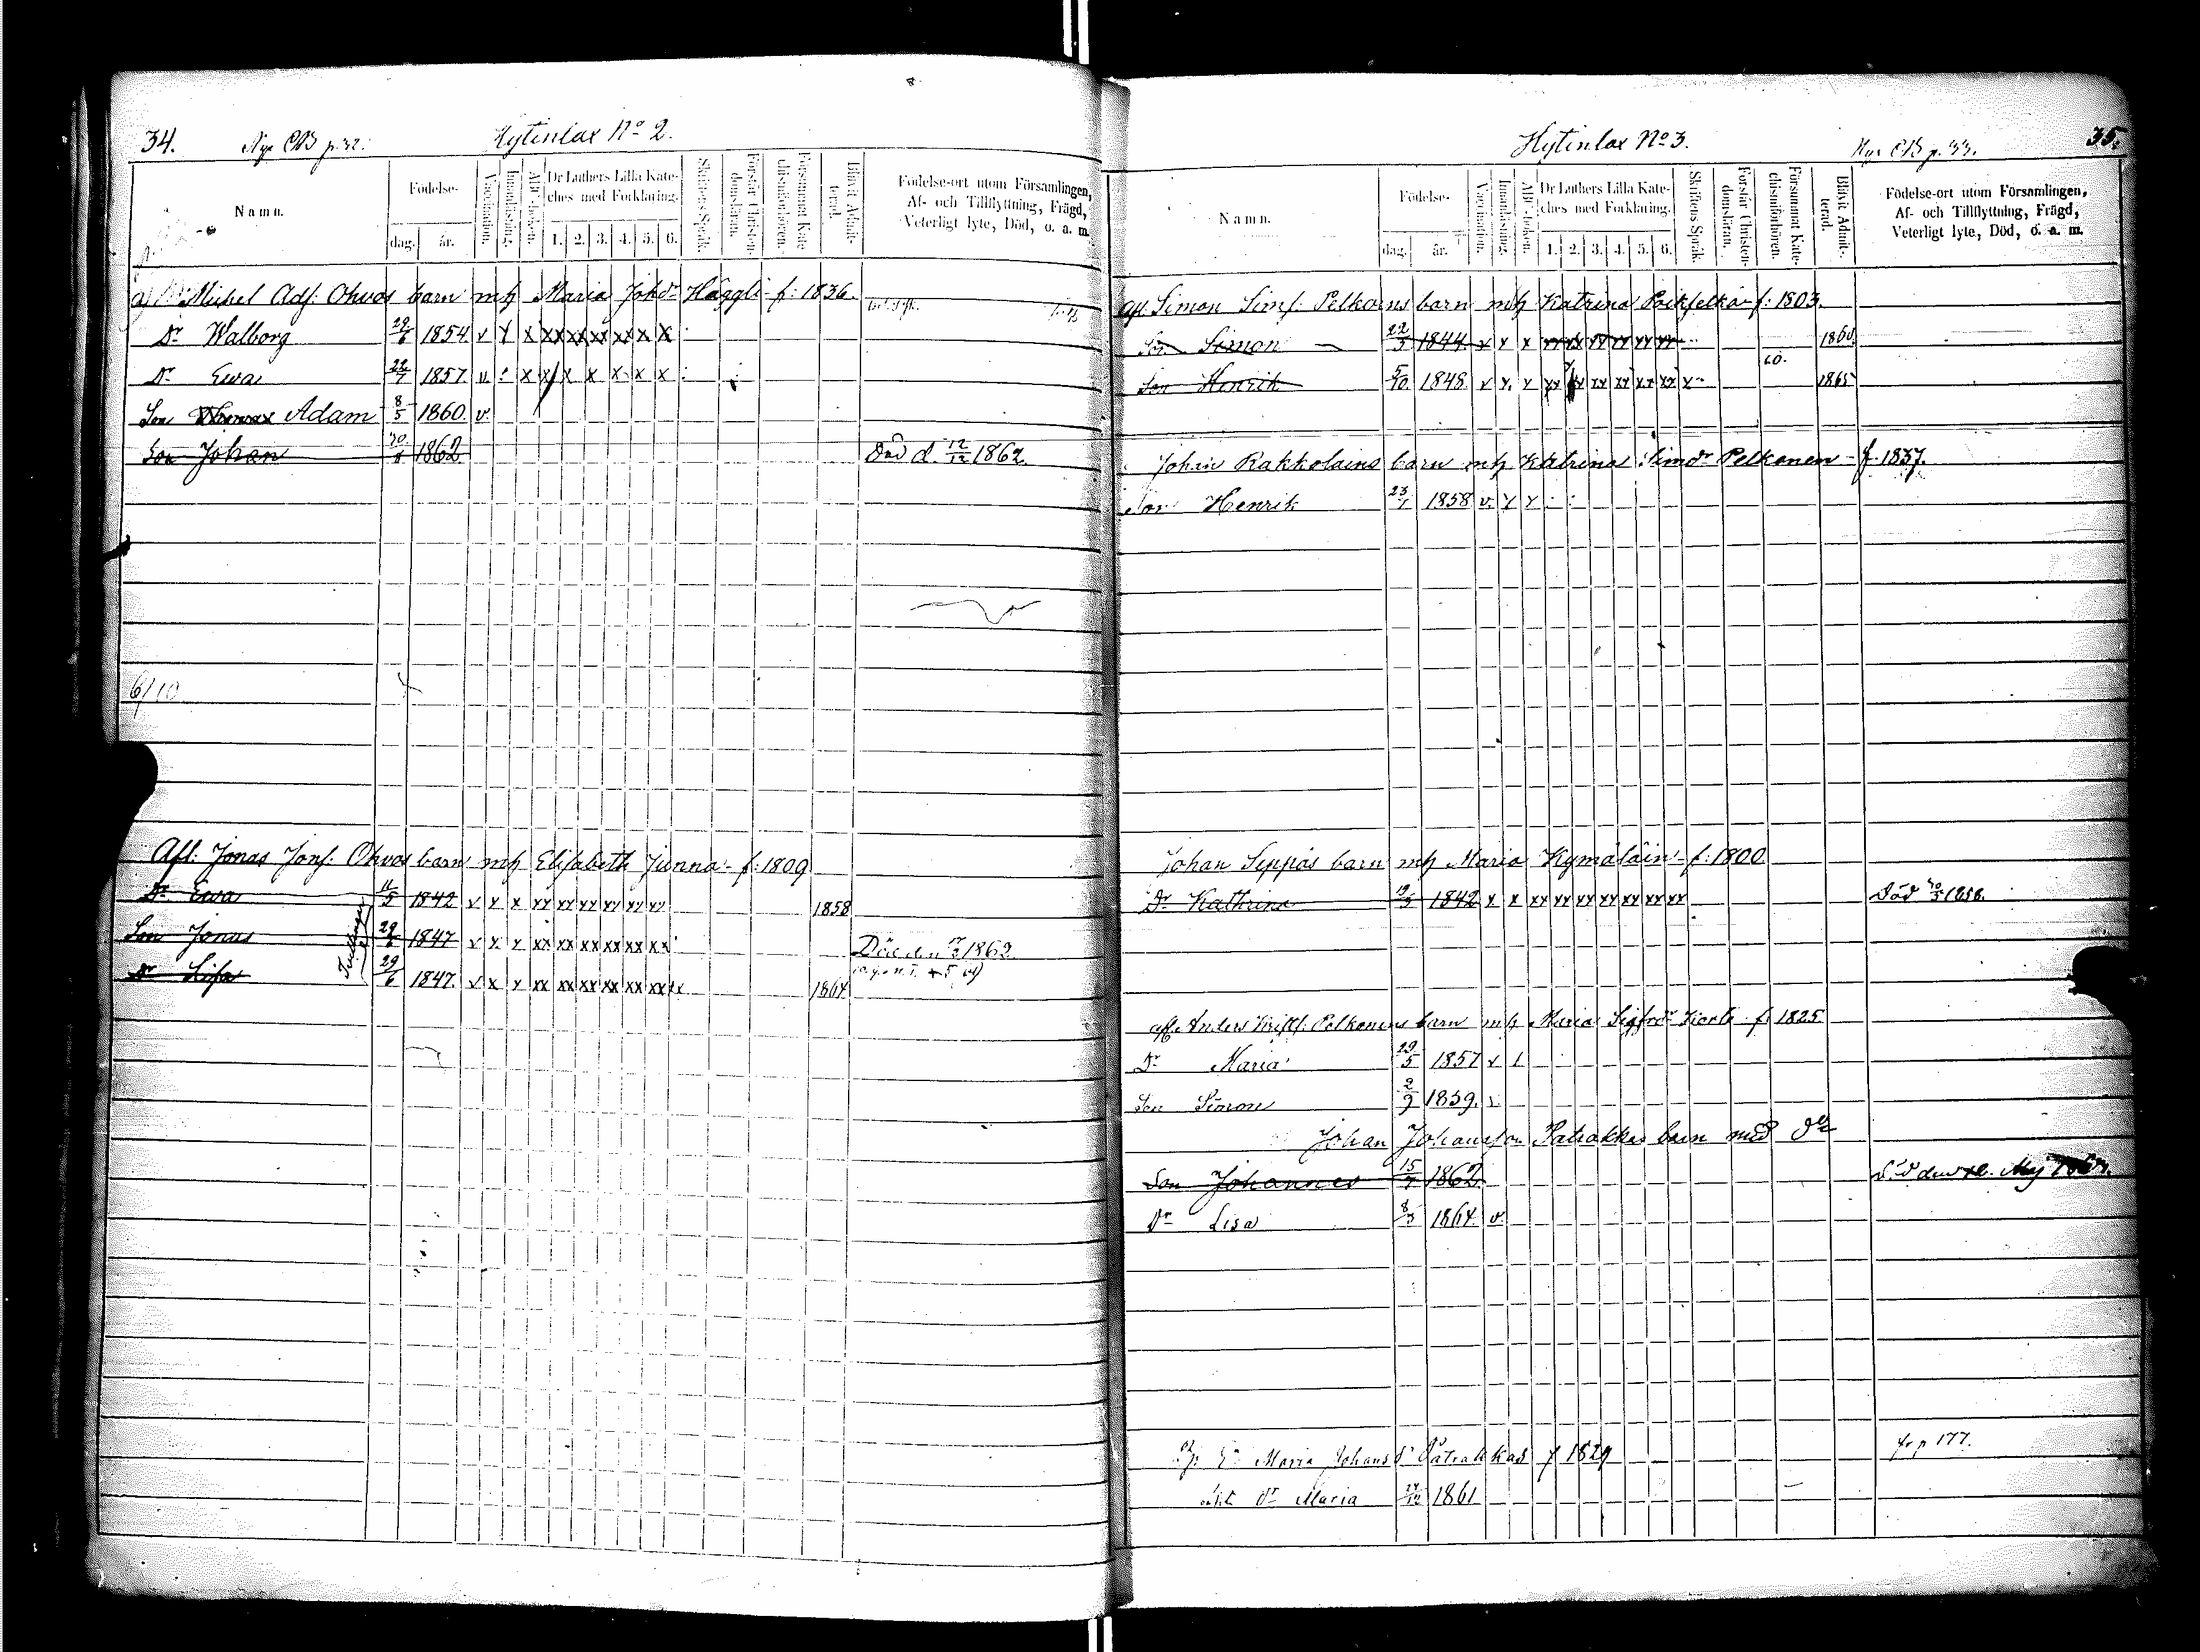 34. Nya CB p. 32. Hytinlax No 2.
Namn. Födelse- dag. år. Vaccination. Innanläsning. Abc-boken. Dr Luthers Lilla Kateches med Förklaring. 1. 2. 3. 4. 5. 6. Skriftens Språk. Förstår Christendomsläran. Försummat Katechismiförhören. Blifvit Admitterad. Födelse-ort utom Församlingen, Af- och Tillflyttning, Frägd, Veterligt lyte, Död, o. a. m.
Michel Adf. Ohvos barn mh Maria Johdr Häggli f. 1836.
Dr Walborg 1854 v x x xx xx xx xx x
Dr Ewa 22/7 1857 v x x x x x x x
Son Adam 8/5 1860. v.
Son Johan 1862 Död d. 12/12 1862.
6/10
Afl. Jonas Jonf. Ohvos barn mh Elisabeth Junna f. 1809
Dr Ewa 11/5 1842 v x x xx xx xx xx xx xx 1858
Son Jonas 29/6 1847 v x x xx xx xx xx xx xx Död den 1862
Dr Lisa 29/6 1847. v x x xx xx xx xx xx xx 1864
Hytinlax No 3. Nya CB p. 33. 35.
Namn. Födelse- dag. år. Vaccination. Innanläsning. Abc-boken. Dr Luthers Lilla Kateches med Förklaring. 1. 2. 3. 4. 5. 6. Skriftens Språk. Förstår Christendomsläran. Försummat Katechismiförhören. Blifvit Admitterad. Födelse-ort utom Församlingen, Af- och Tillflyttning, Frägd, Veterligt lyte, Död, o. a. m.
Afl. Simon Simf. Pelkonens barn mh Katrina f. 1803.
Son Simon 22/3 1844 v x x xx xx xx xx xx xx 1860
Son Henrik 5/10 1848 v x x xx xx xx xx xx xx x 60. 1865
Johan Rakkolains barn mh Katrina Simdr Pelkonen f. 1837.
Son Henrik 23/1 1858 v. x x
Johan Seppäs barn mh Maria Kymäläin f. 1800
Dr Kathrina 1842 x x xx xx xx xx xx xx xx Död 1858.
Afl. Anders Pelkonens barn mh Maria Sigfrdr f. 1825
Dr Maria 29/5 1857 v
Son Simon 2/9 1859. v
Johan Johansson Patrakkas barn med do
Son Johannes 15/7 1862 Död den Maj
Dr Lisa 8/3 1864 v.
Maria Johans dr Patrakkas f 1829 fr p 177.
Dr Maria 1861